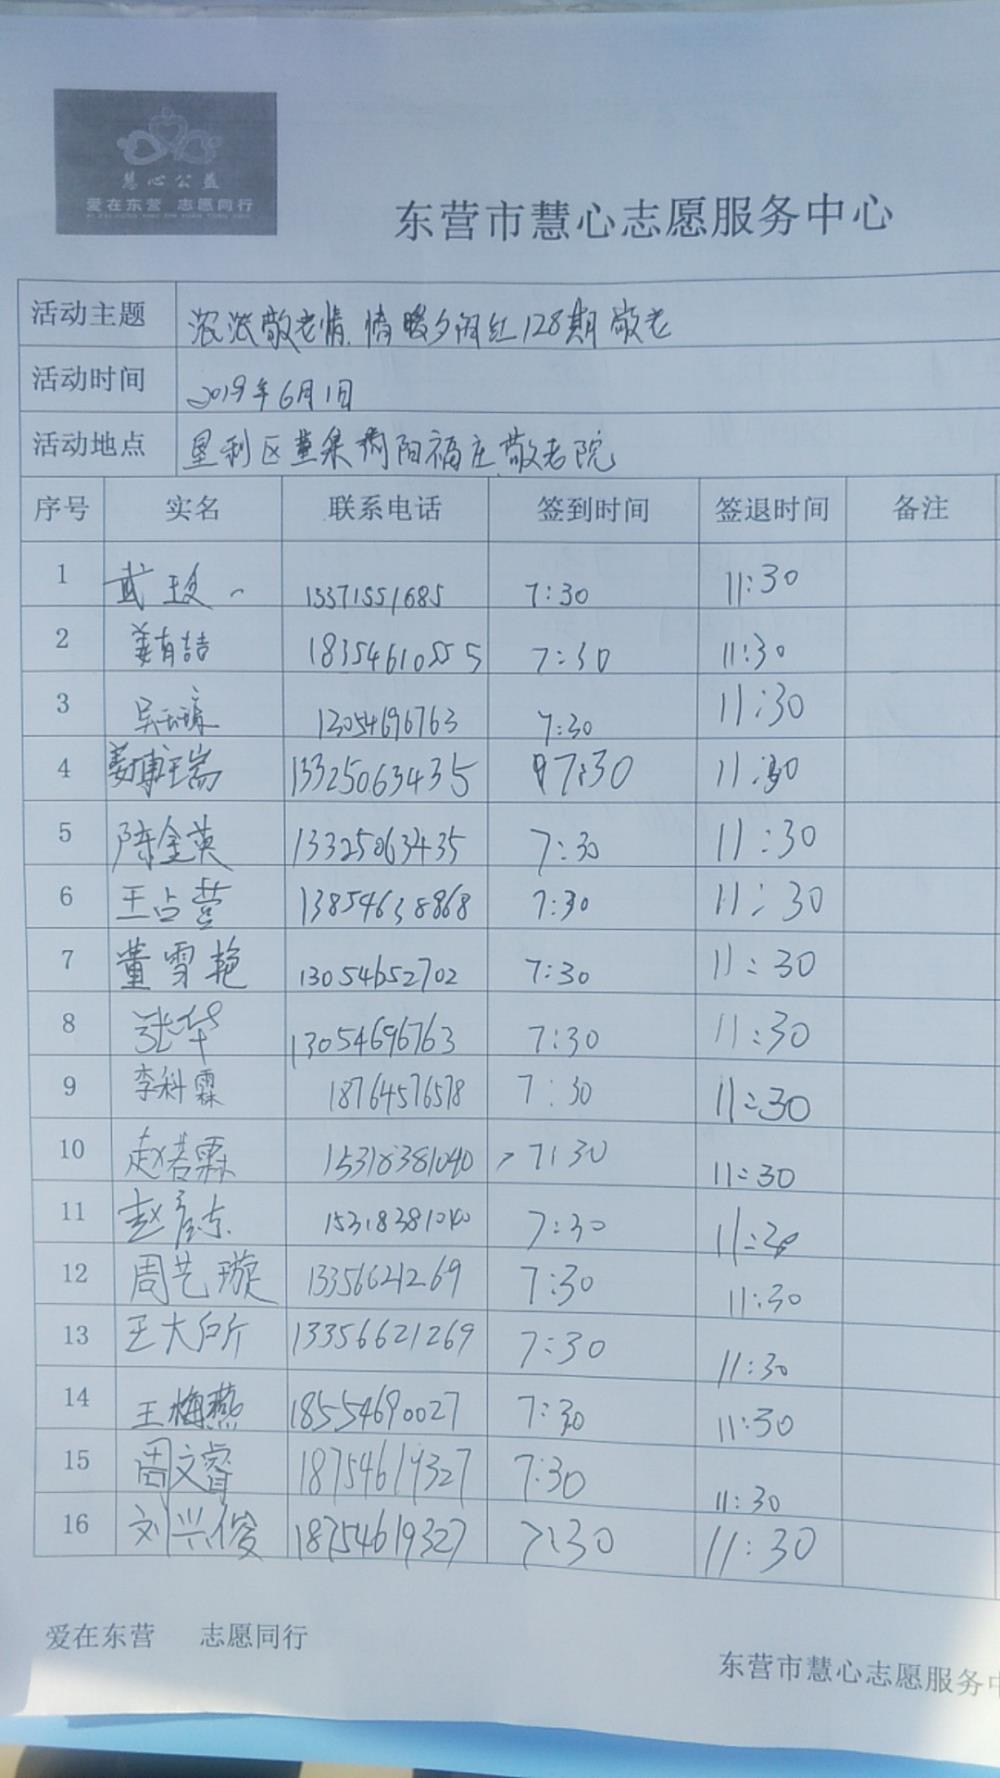 慧心公益
爱在东营 志愿同行
东营市慧心志愿服务中心
活动主题 浓浓敬老情.情暖夕阳红128期敬老
活动时间 2019年6月1日
活动地点 垦利区董集 阳福庄敬老院
序号 实名 联系电话 签到时间 签退时间 备注
1 武 13371551685 7:30 11:30
2 姜有喆 18354610555 7:30 11:30
3 吴 13054696763 7:30 11:30
4 姜博瑞 13325063435 7:30 11:30
5 陈金英 13325063435 7:30 11:30
6 王占营 13854638868 7:30 11:30
7 董雪艳 13054652702 7:30 11:30
8 张华 13054696763 7:30 11:30
9 李科霖 18764576578 7:30 11:30
10 赵若霖 15318381040 7:30 11:30
11 赵彦东 15318381040 7:30
12 周艺璇 13356621269 7:30 11:30
13 王大 13356621269 7:30 11:30
14 王梅燕 18554690027 7:30 11:30
15 周文睿 18754619327 7:30 11:30
16 刘兴俊 18754619327 7:30 11:30
爱在东营 志愿同行
东营市慧心志愿服务中